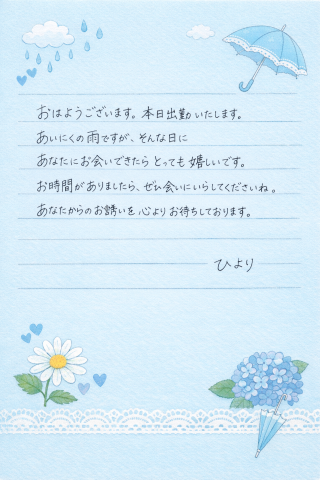 おはようございます。本日出勤いたします。
あいにくの雨ですが、そんな日に
あなたにお会いできたらとっても嬉しいです。
お時間がありましたら、ぜひ会いにいらしてくださいね。
あなたからのお誘いを心よりお待ちしております。
ひより